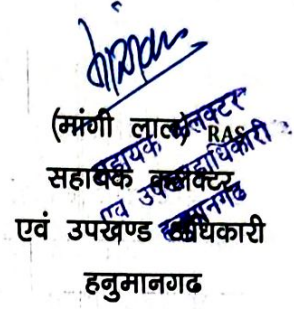 (मांगी लाल) RAS
सहायक कलेक्टर
एवं उपखण्ड अधिकारी
हनुमानगढ
सहायक कलेक्टर
एवं उपखण्डाधिकारी
हनुमानगढ